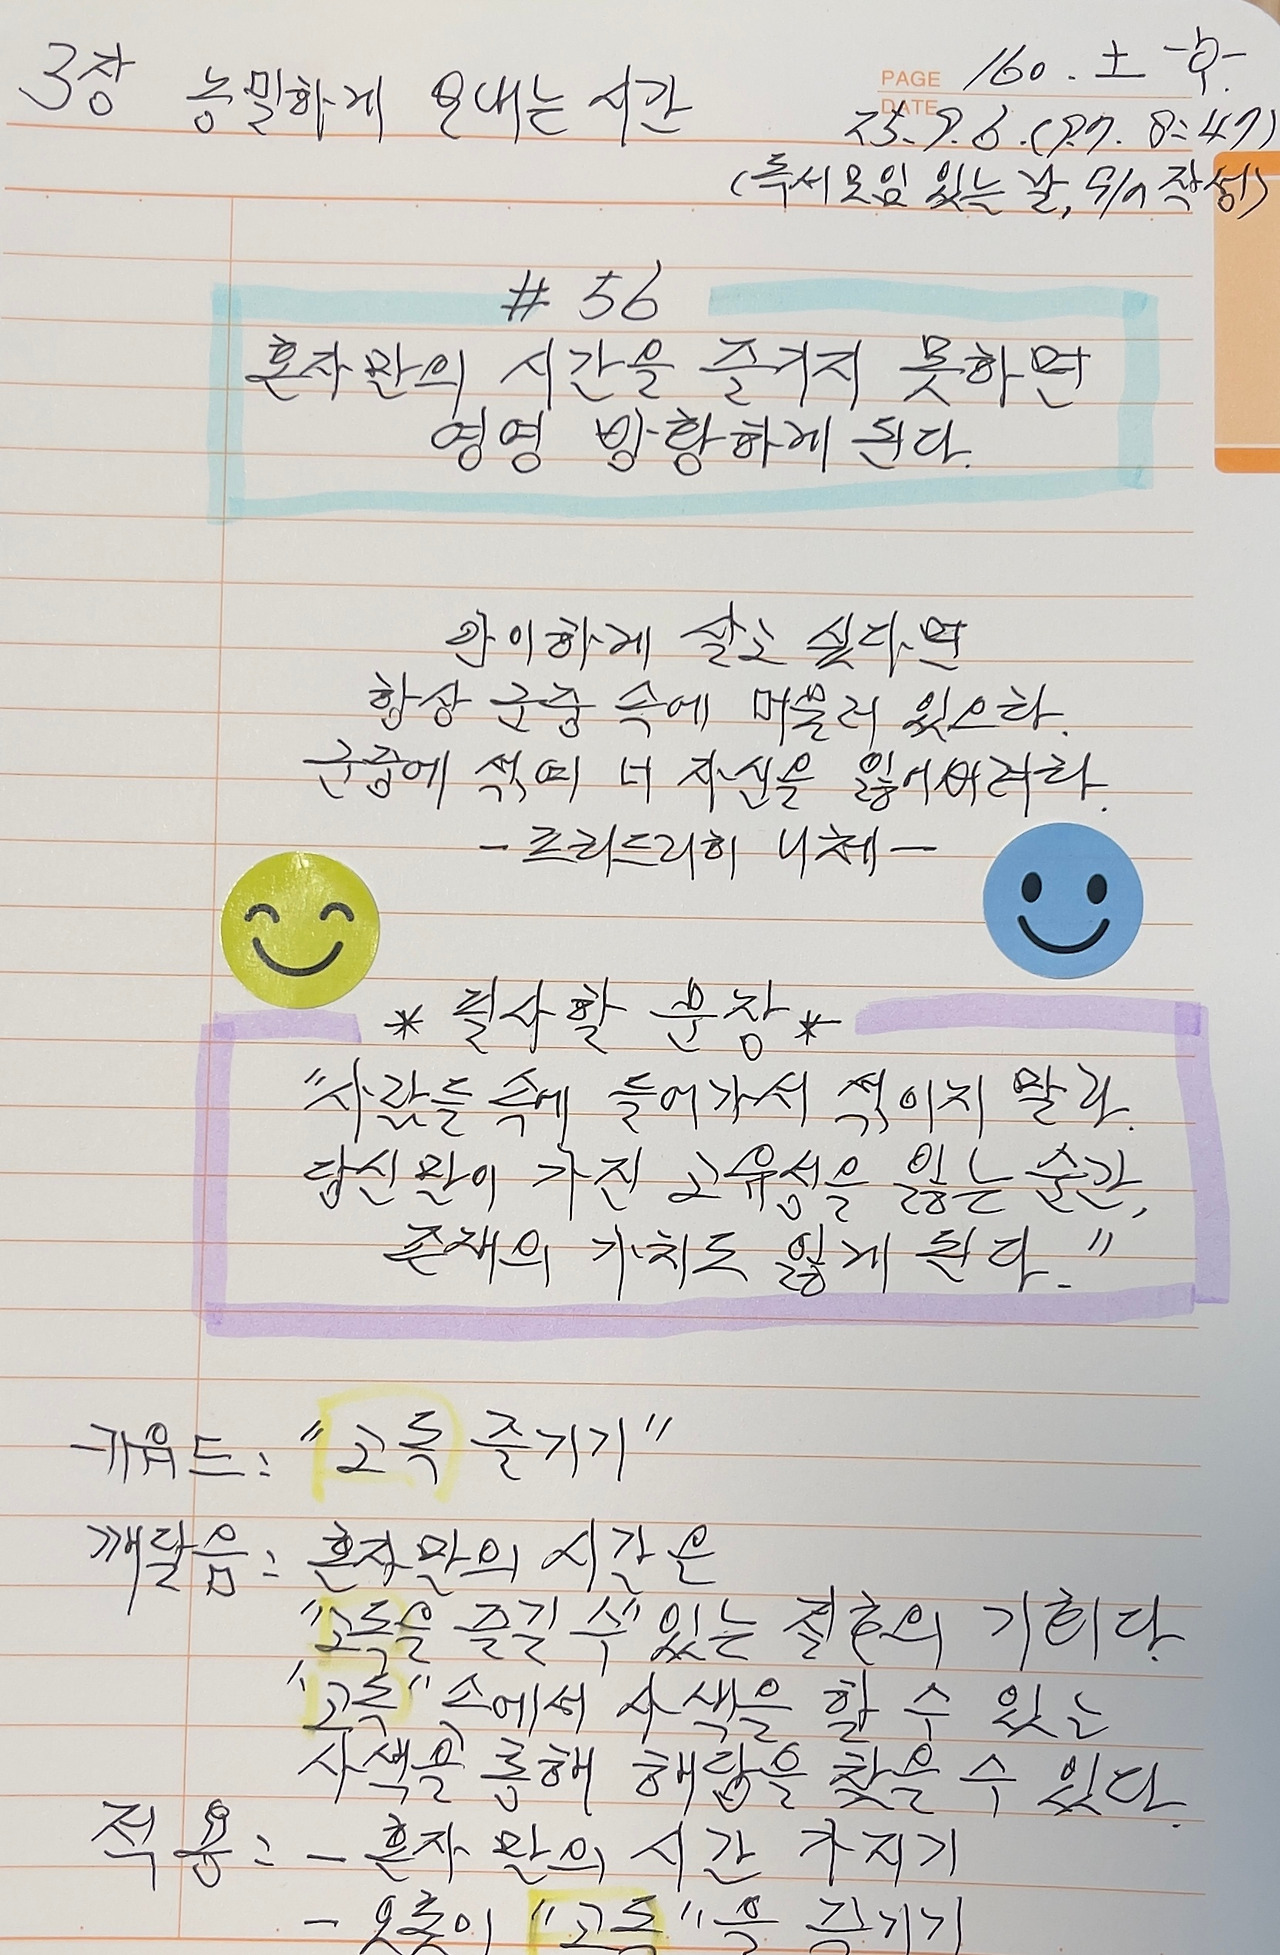 3장 농밀하게 보내는 시간
PAGE 160. 土
DATE 25.9.6. 8:47)
(독서모임 있는 날, 작성)
# 56
혼자만의 시간을 즐기지 못하면
영영 방황하게 된다.
안이하게 살고 싶다면
항상 군중 속에 머물러 있으라.
군중에 섞여 너 자신을 잃어버려라.
- 프리드리히 니체 -
* 필사할 문장 *
"사람들 속에 들어가서 섞이지 말라.
당신만이 가진 고유성을 잃는 순간,
존재의 가치도 잃게 된다."
키워드: "고독 즐기기"
깨달음: 혼자만의 시간은
"고독을 즐길 수" 있는 절호의 기회다.
"고독" 속에서 사색을 할 수 있는
사색을 통해 해답을 찾을 수 있다.
적용: - 혼자만의 시간 가지기
- 오롯이 "고독"을 즐기기